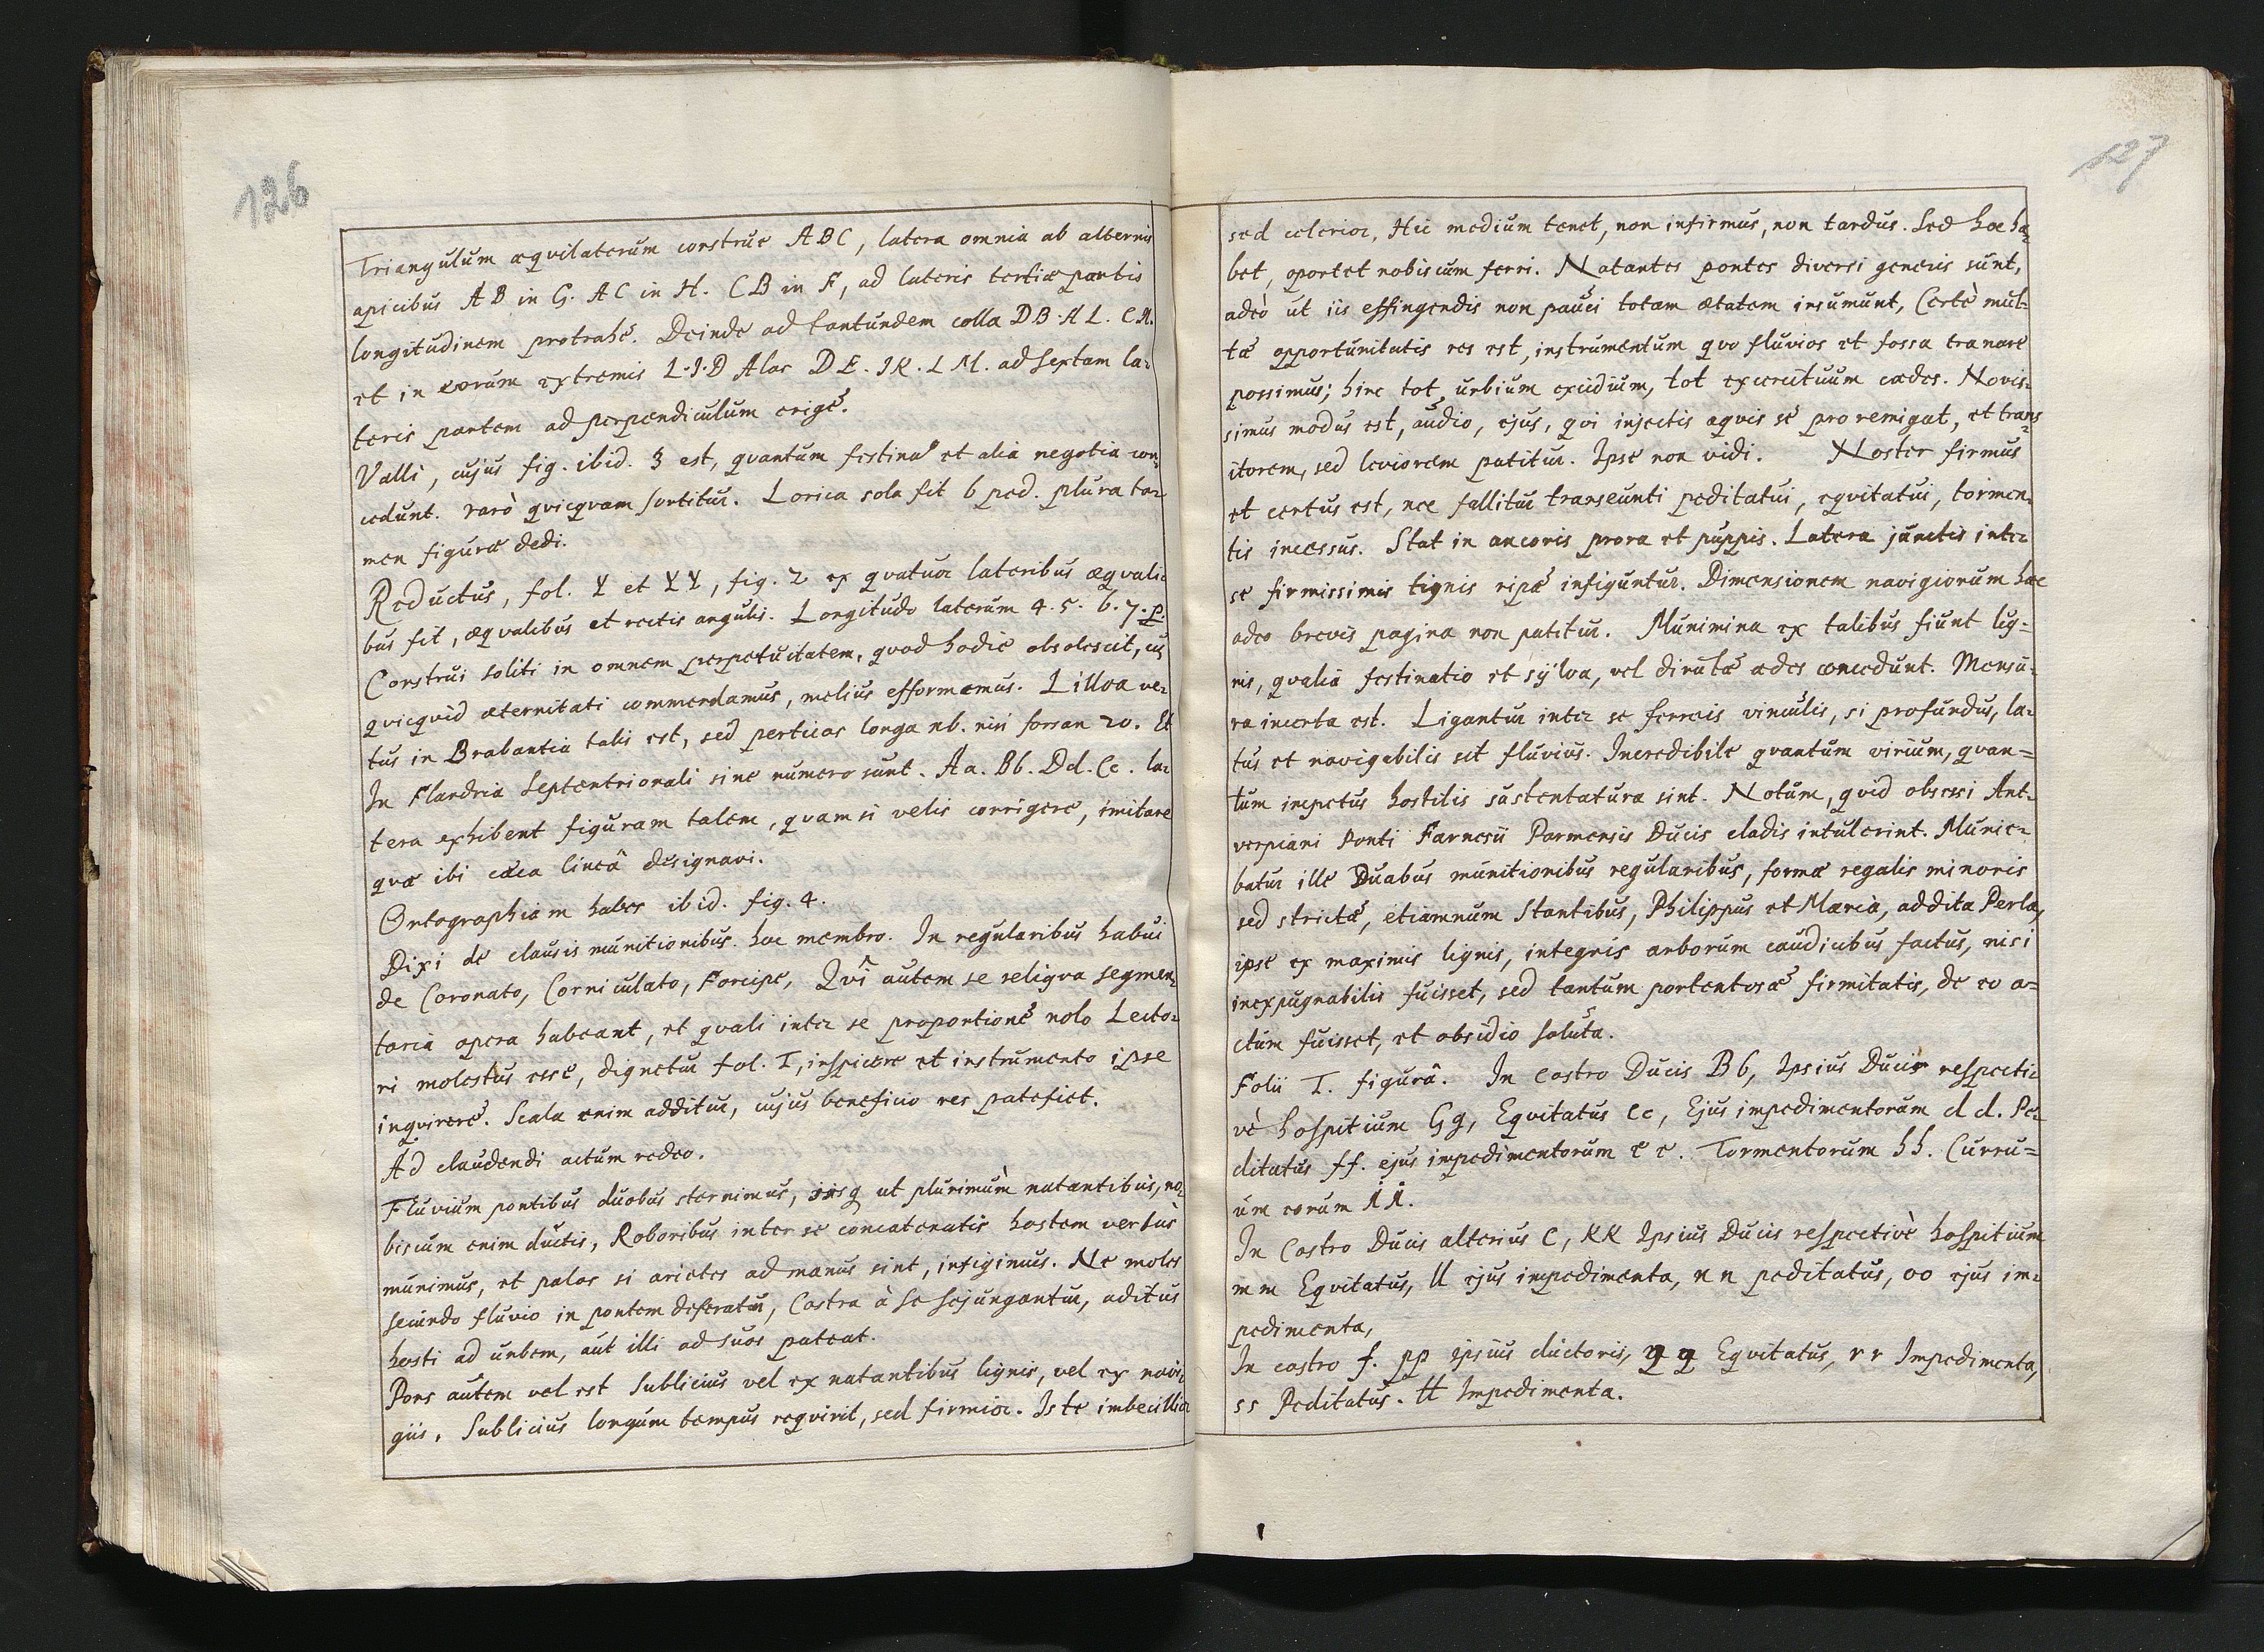 126
Triangulum æqvilaterum construe ABC, latera omnia ab alternis
apicibus AB in G. AC in H. CB in F, ad lateris tertiæ partis
longitudinem protrahe. Deinde ad tantundem colla DB. AL. CH.
et in eorum extremis L.I.D Alas DE. IK. LM. ad sextam la-
teris partem ad perpendiculum erige.
Valli, cujus fig. ibid. 3 est, qvantum festina et alia negotia con-
cedunt. rarò qvicqvam sortitur. Lorica sola fit 6 ped. plura ta-
men figuræ dedi.
Reductus, fol. Y et YY, fig. 2 ex qvatuor lateribus æqvali-
bus fit, æqvalibus et rectis angulis. Longitudo laterum 4. 5. 6. 7. p.
Construi soliti in omnem perpetuitatem, qvod hodie obsolescit, cu
qvicqvid æternitati commendamus, melius efformamus. Lilloa ve-
tus in Brabantia talis est, sed perticas longa nb. nisi forsan 20. Et
In Flandria Septentrionali sine numero sunt. Aa. Bb. Dd. Cc. la-
tera exhibent figuram talem, qvam si velis corrigere, imitare
qvæ ibi cæca lineâ designavi.
Ortographiam habes ibid. fig. 4.
Dixi de clausis munitionibus. hoc membro. In regularibus habui
de Coronato, Corniculato, Forcipe, Qvî autem se reliqva segmen-
taria opera habeant, et qvali inter se proportione nolo Lecto-
ri molestus esse, dignetur fol. T, inspicere et instrumento ipse
inqvirere. Scala enim additur, cujus beneficio res patefiet.
Ad claudendi actum redeo.
Fluvium pontibus duobus sternimus, iisq ut plurimùm natantibus, no-
biscum enim ductis, Roboribus inter se concatenatis hostem versùs
munimus, et palos si arietes ad manus sint, infigimus. Ne moles
secundo fluvio in pontem deferatur, Castra à se sejungantur, aditus
hosti ad urbem, aut illi ad suos pateat.
Pons autem vel est Sublicius vel ex natantibus lignis, vel ex navi-
giis. Sublicius longum tempus reqvirit, sed firmior. Iste imbecillior
127
sed celerior, Hic medium tenet, non infirmus, non tardus. Sed hoc ha-
bet, oportet nobiscum ferri. Natantes pontes diversi generis sunt,
adeò ut iis effingendis non pauci totam ætatem insumunt, Certè mul-
tæ opportunitatis res est, instrumentum qvo fluvios et fossa tranare
possimus; hinc tot urbium excidium, tot exercituum cædes. Novis-
simus modus est, audio, ejus, qvi injectis aqvis se pro remigat, et trans-
itorem, sed leviorem patitur. Ipse non vidi. Noster firmus
et certus est, nec fallitur transeunti peditatui, eqvitatui, tormen-
tis incessus. Stat in ancoris prora et puppis. Latera junctis inter
se firmissimis tignis ripæ infiguntur. Dimensionem navigiorum hæc
adeo brevis pagina non patitur. Munimina ex talibus fiunt lig-
nis, qvalia festinatio et sylva, vel dirutæ ædes concedunt. Mensu-
ra incerta est. Ligantur inter se ferreis vinculis, si profundus, la-
tus et navigabilis sit fluvius. Incredibile qvantum virium, qvan=
tum impetus hostilis sustentatura sint. Notum, qvid obsessi Ant-
verpiani Ponti Farnesii Parmensis Ducis cladis intulerint. Munie-
batur ille Duabus munitionibus regularibus, formæ regalis minoris
sed strictæ, etiamnum Stantibus, Philippus et Maria, addita Perla,
ipse ex maximis lignis, integris arborum caudicibus factus, nisi
inexpugnabilis fuisset, sed tantum portentosæ firmitatis, de eo a-
ctum fuisset, et obsidio soluta.
Folii T. figurâ. In castro Ducis Bb, Ipsius Ducis respecti-
vè hospitium Gg, Eqvitatus cc, Ejus impedimentorum dd. Pe-
ditatus ff. ejus impedimentorum ee. Tormentorum hh. Curru=
um eorum ii.
In Castro Ducis alterius C, KK Ipsius Ducis respectivè hospitium
mm Eqvitatus, ll ejus impedimenta, nn peditatus, oo ejus im-
pedimenta,
In castro f. pp ipsius ductoris, qq Eqvitatus, rr Impedimenta,
ss Peditatus. tt Impedimenta.